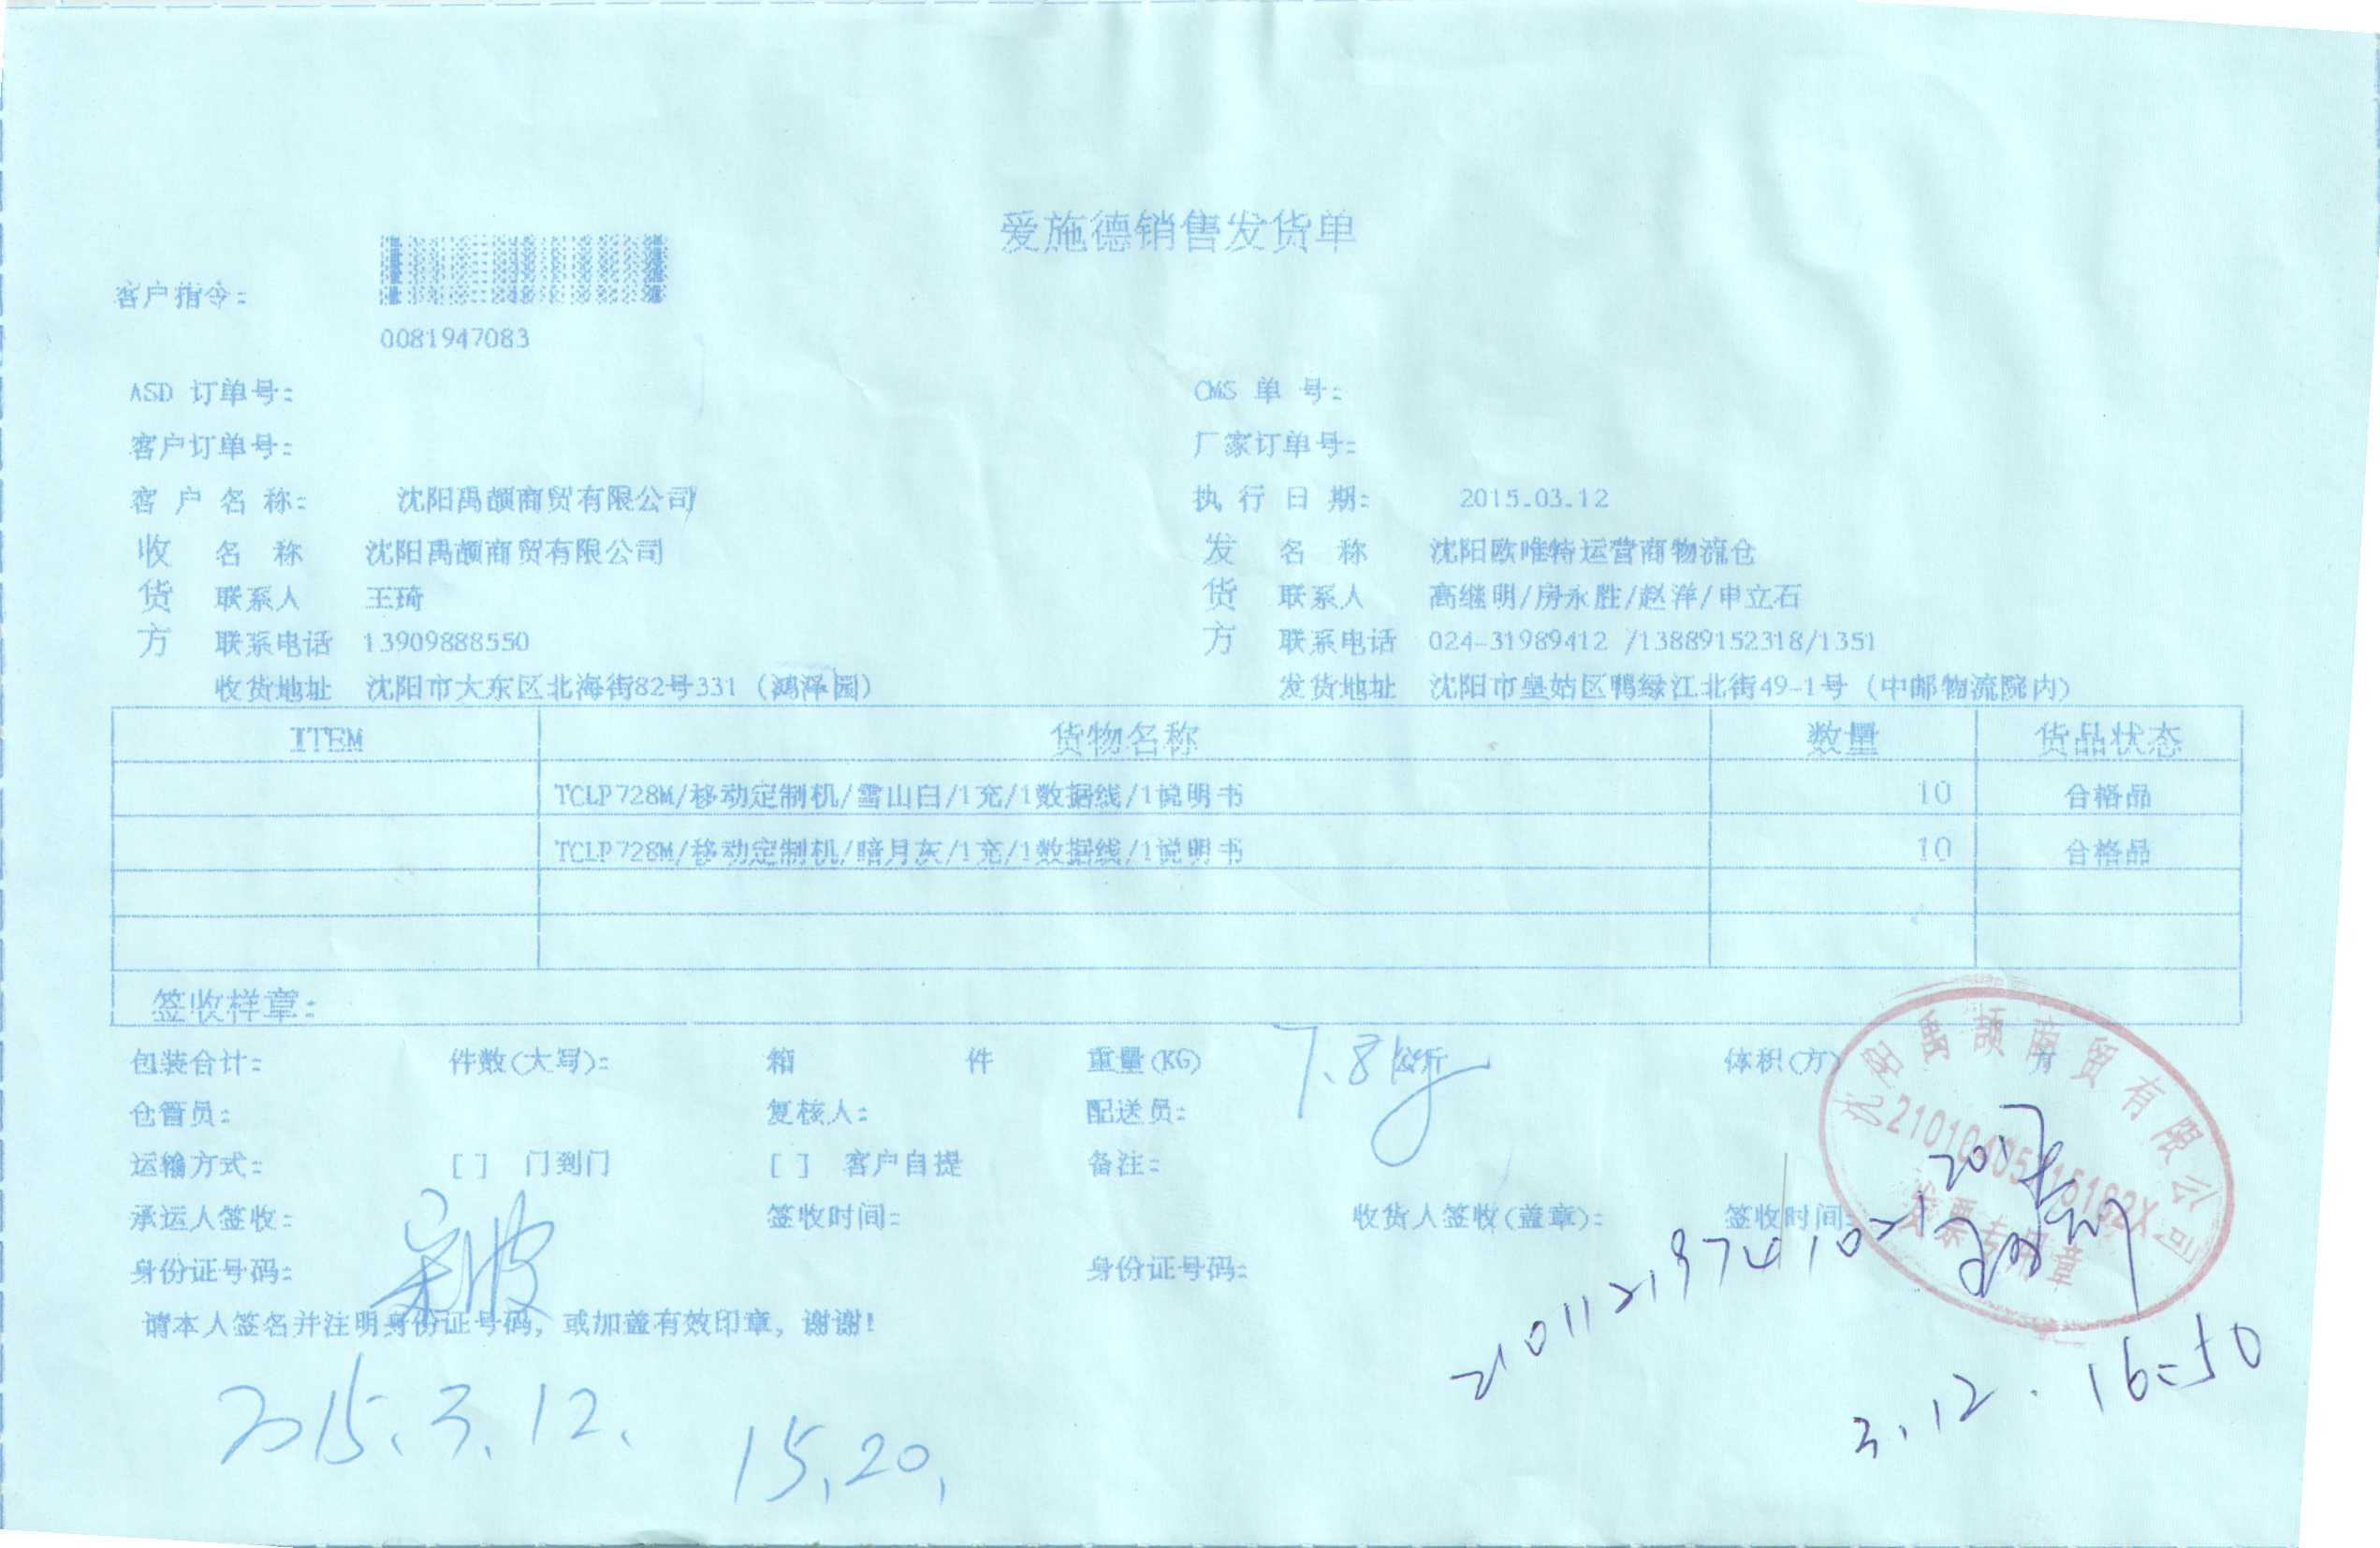 爱施德销售发货单
客户指令:
0081947083
ASD 订单号: CMS 单 号:
客户订单号: 厂家订单号:
客 户 名 称: 沈阳禹颉商贸有限公司 执 行 日 期: 2015.03.12
收 名 称 沈阳禹颉商贸有限公司 发 名 称 沈阳欧唯特运营商物流仓
货 联系人 王琦 货 联系人 高继明/房永胜/赵洋/申立石
方 联系电话 13909888550 方 联系电话 024-31989412 /13889152318/1351
收货地址 沈阳市大东区北海街82号331 (鸿泽园) 发货地址 沈阳市皇姑区鸭绿江北街49-1号 (中邮物流院内)
ITEM 货物名称 数量 货品状态
TCLP728M/移动定制机/雪山白/1充/1数据线/1说明书 10 合格品
TCLP728M/移动定制机/暗月灰/1充/1数据线/1说明书 10 合格品
签收样章:
包装合计: 件数(大写): 箱 件 重量(KG) 7.8kg 公斤 体积(方) 方
仓管员: 复核人: 配送员:
运输方式: [ ] 门到门 [ ] 客户自提 备注:
承运人签收: 签收时间: 收货人签收(盖章): 签收时间:
身份证号码: 身份证号码:
请本人签名并注明身份证号码, 或加盖有效印章, 谢谢!
2015.3.12. 15.20.
3.12. 16:50
沈阳禹颉商贸有限公司
发票专用章